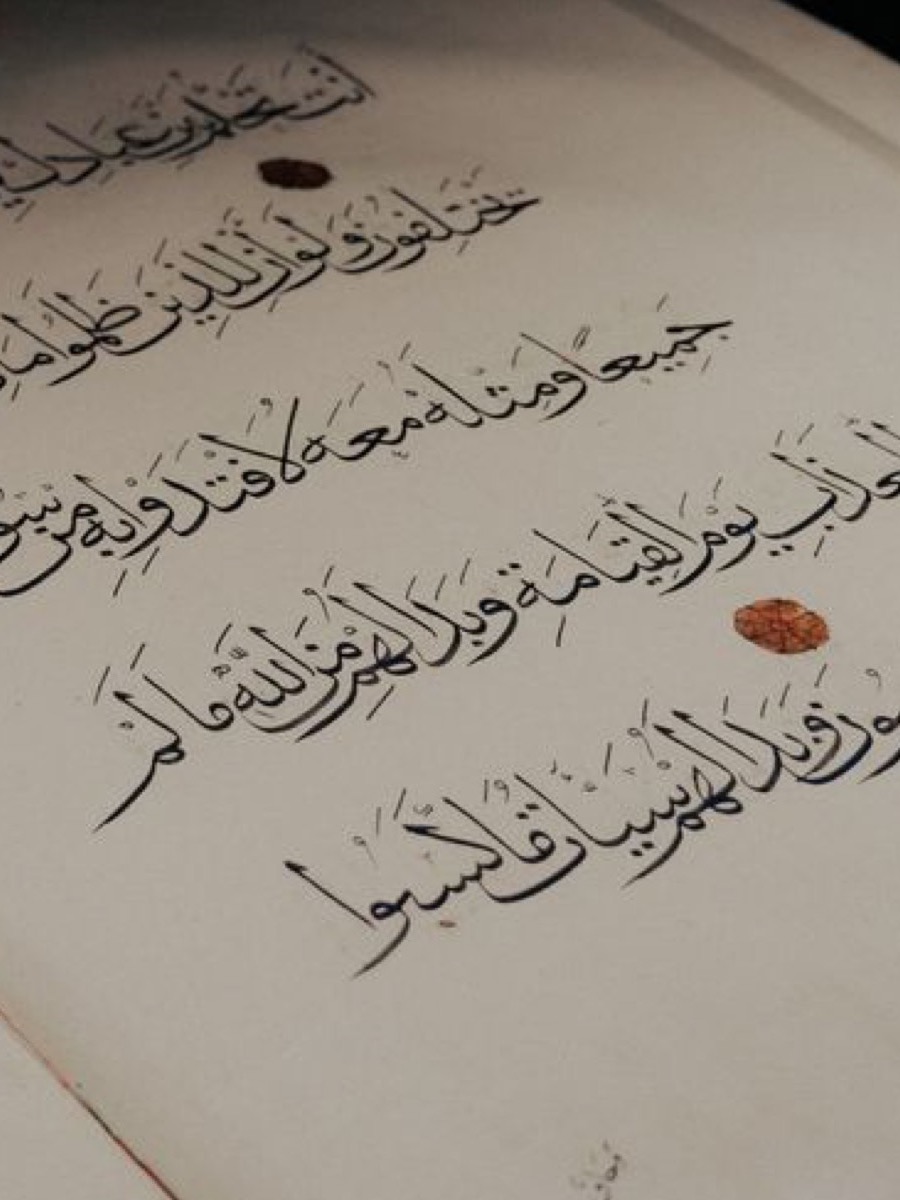 أَنتَ تَحْكُمُ بَيْنَ عِبَادِكَ
يَخْتَلِفُونَ وَلَوْ أَنَّ لِلَّذِينَ ظَلَمُوا مَا
جَمِيعًا وَمِثْلَهُ مَعَهُ لَافْتَدَوْا بِهِ مِن سُو
الْعَذَابِ يَوْمَ الْقِيَامَةِ وَبَدَا لَهُم مِّنَ اللَّهِ مَا لَمْ
وَبَدَا لَهُمْ سَيِّئَاتُ مَا كَسَبُوا